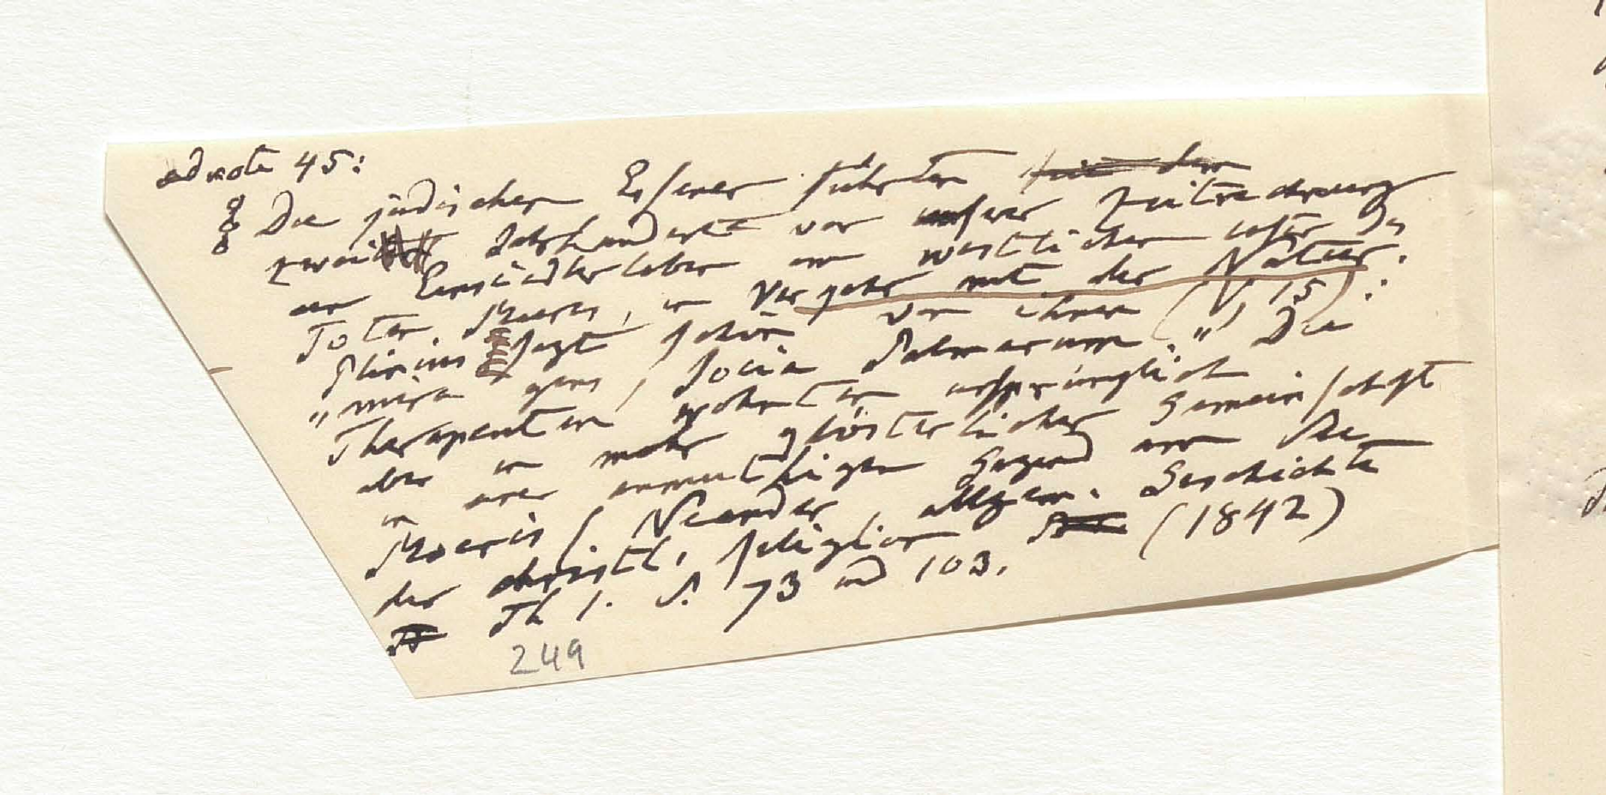 ad note 45:
Die jüdischen Essener führten
zwei Jahrhunderte vor unsrer Zeitrechnung
ein Einsiedlerleben am westlichen Ufer des
Toten Meeres, in Verkehr mit der Natur.
Plinius sagt schön von ihnen (V, 15):
„mira gens, socia palmarum." Die
Therapeuten wohnten ursprünglich
aber in mehr klösterlicher Gemeinschaft
in einer anmuthigen Gegend am See
Moeris, Neander, allgem. Geschichte
der christl. Religion (1842)
Th 1. S. 73 und 103.
249